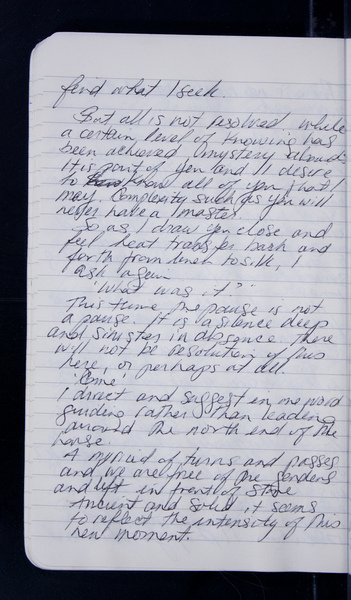 find what I seek.
But all is not resolved while
a certain level of knowing has
been achieved, mystery abound.
It is part of you and I desire
to know all of you that I
may. Complexity such as you will
never have a master.
So as I draw you close and
feel heat transfer back and
forth from linen to silk, I
ask again
'What was it?'
This time the pause is not
a pause. It is a silence deep
and sinister in absence. There
will not be resolution of this
here, or perhaps at all.
'Come'
I direct and suggest in one word
guiding rather than leading
around the north end of the
house.
A myriad of turns and passes
and we are free of the gardens
and left in front of stone
Ancient and solid, it seems
to reflect the intensity of this
new moment.